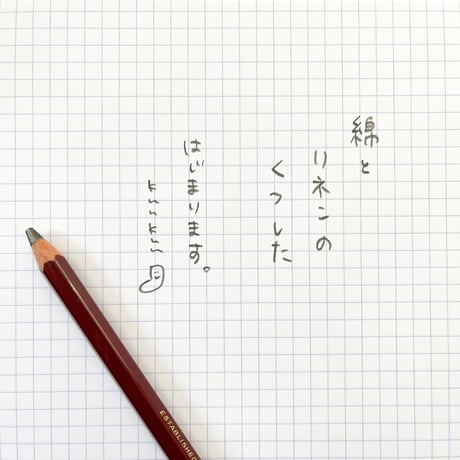 綿と
リネンの
くつした
はじまります。
kuukuu
ESTABLISHED